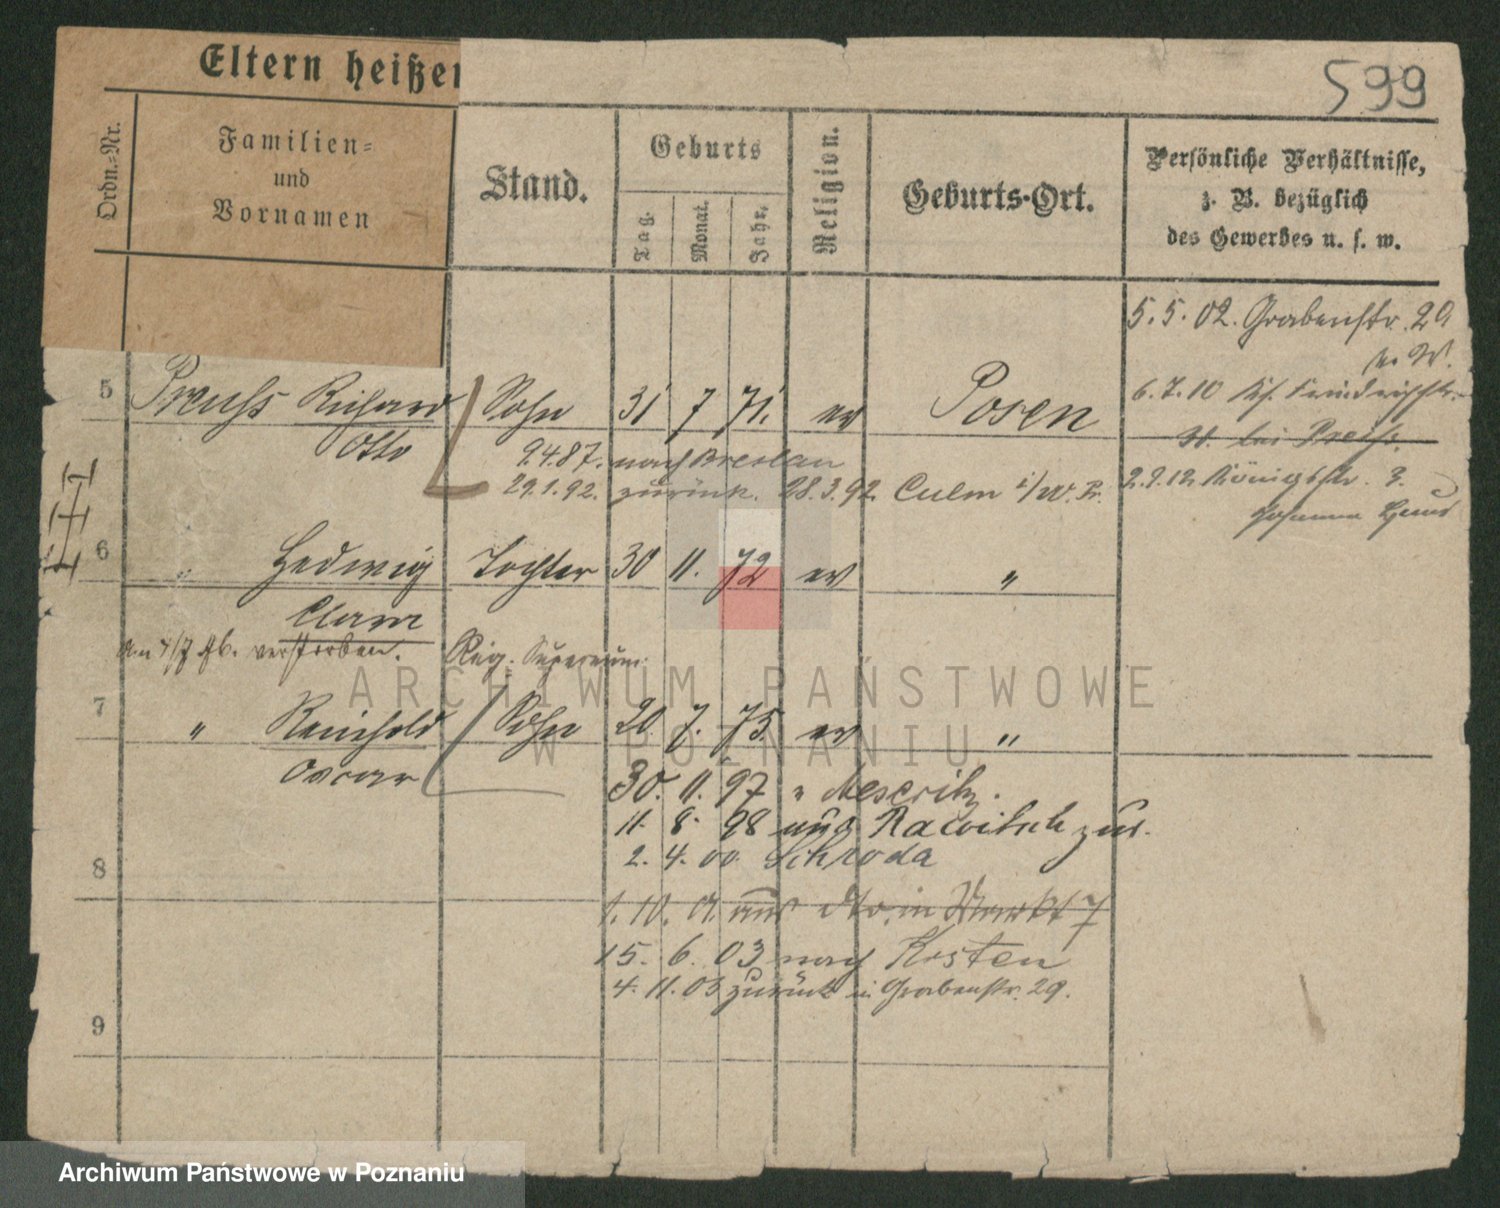 Eltern heißen
599
Ordn.-Nr.
Familien-
und
Vornamen
Stand.
Geburts
Tag.
Monat.
Jahr.
Religion.
Geburts-Ort.
Persönliche Verhältnisse,
z. B. bezüglich
des Gewerbes u. s. w.
5. 5. 02. Grabenstr. 29
5 Preuhs Richard Sohn 31 7 71. ev Posen
Otto
6. 7. 10
9.4.87. nach Breslau
29.1.92. zurück. 28.3.92. Culm i/W. Pr.
2.9.12 Königstr. 3.
6 " Hedwig Tochter 30 11. 72 ev "
Clara
verstorben.
7 " Reinhold Sohn 20. 7. 75. ev "
Oscar
30. 11. 97 " Meseritz.
11. 8. 98 aus Rawitsch zur.
2. 4. 00. Schroda
8
1. 10. 01. aus dto, in Markt 7
15. 6. 03 nach Kosten
4. 11. 03 zurück in Grabenstr. 29.
9
ARCHIWUM PAŃSTWOWE
W POZNANIU
Archiwum Państwowe w Poznaniu